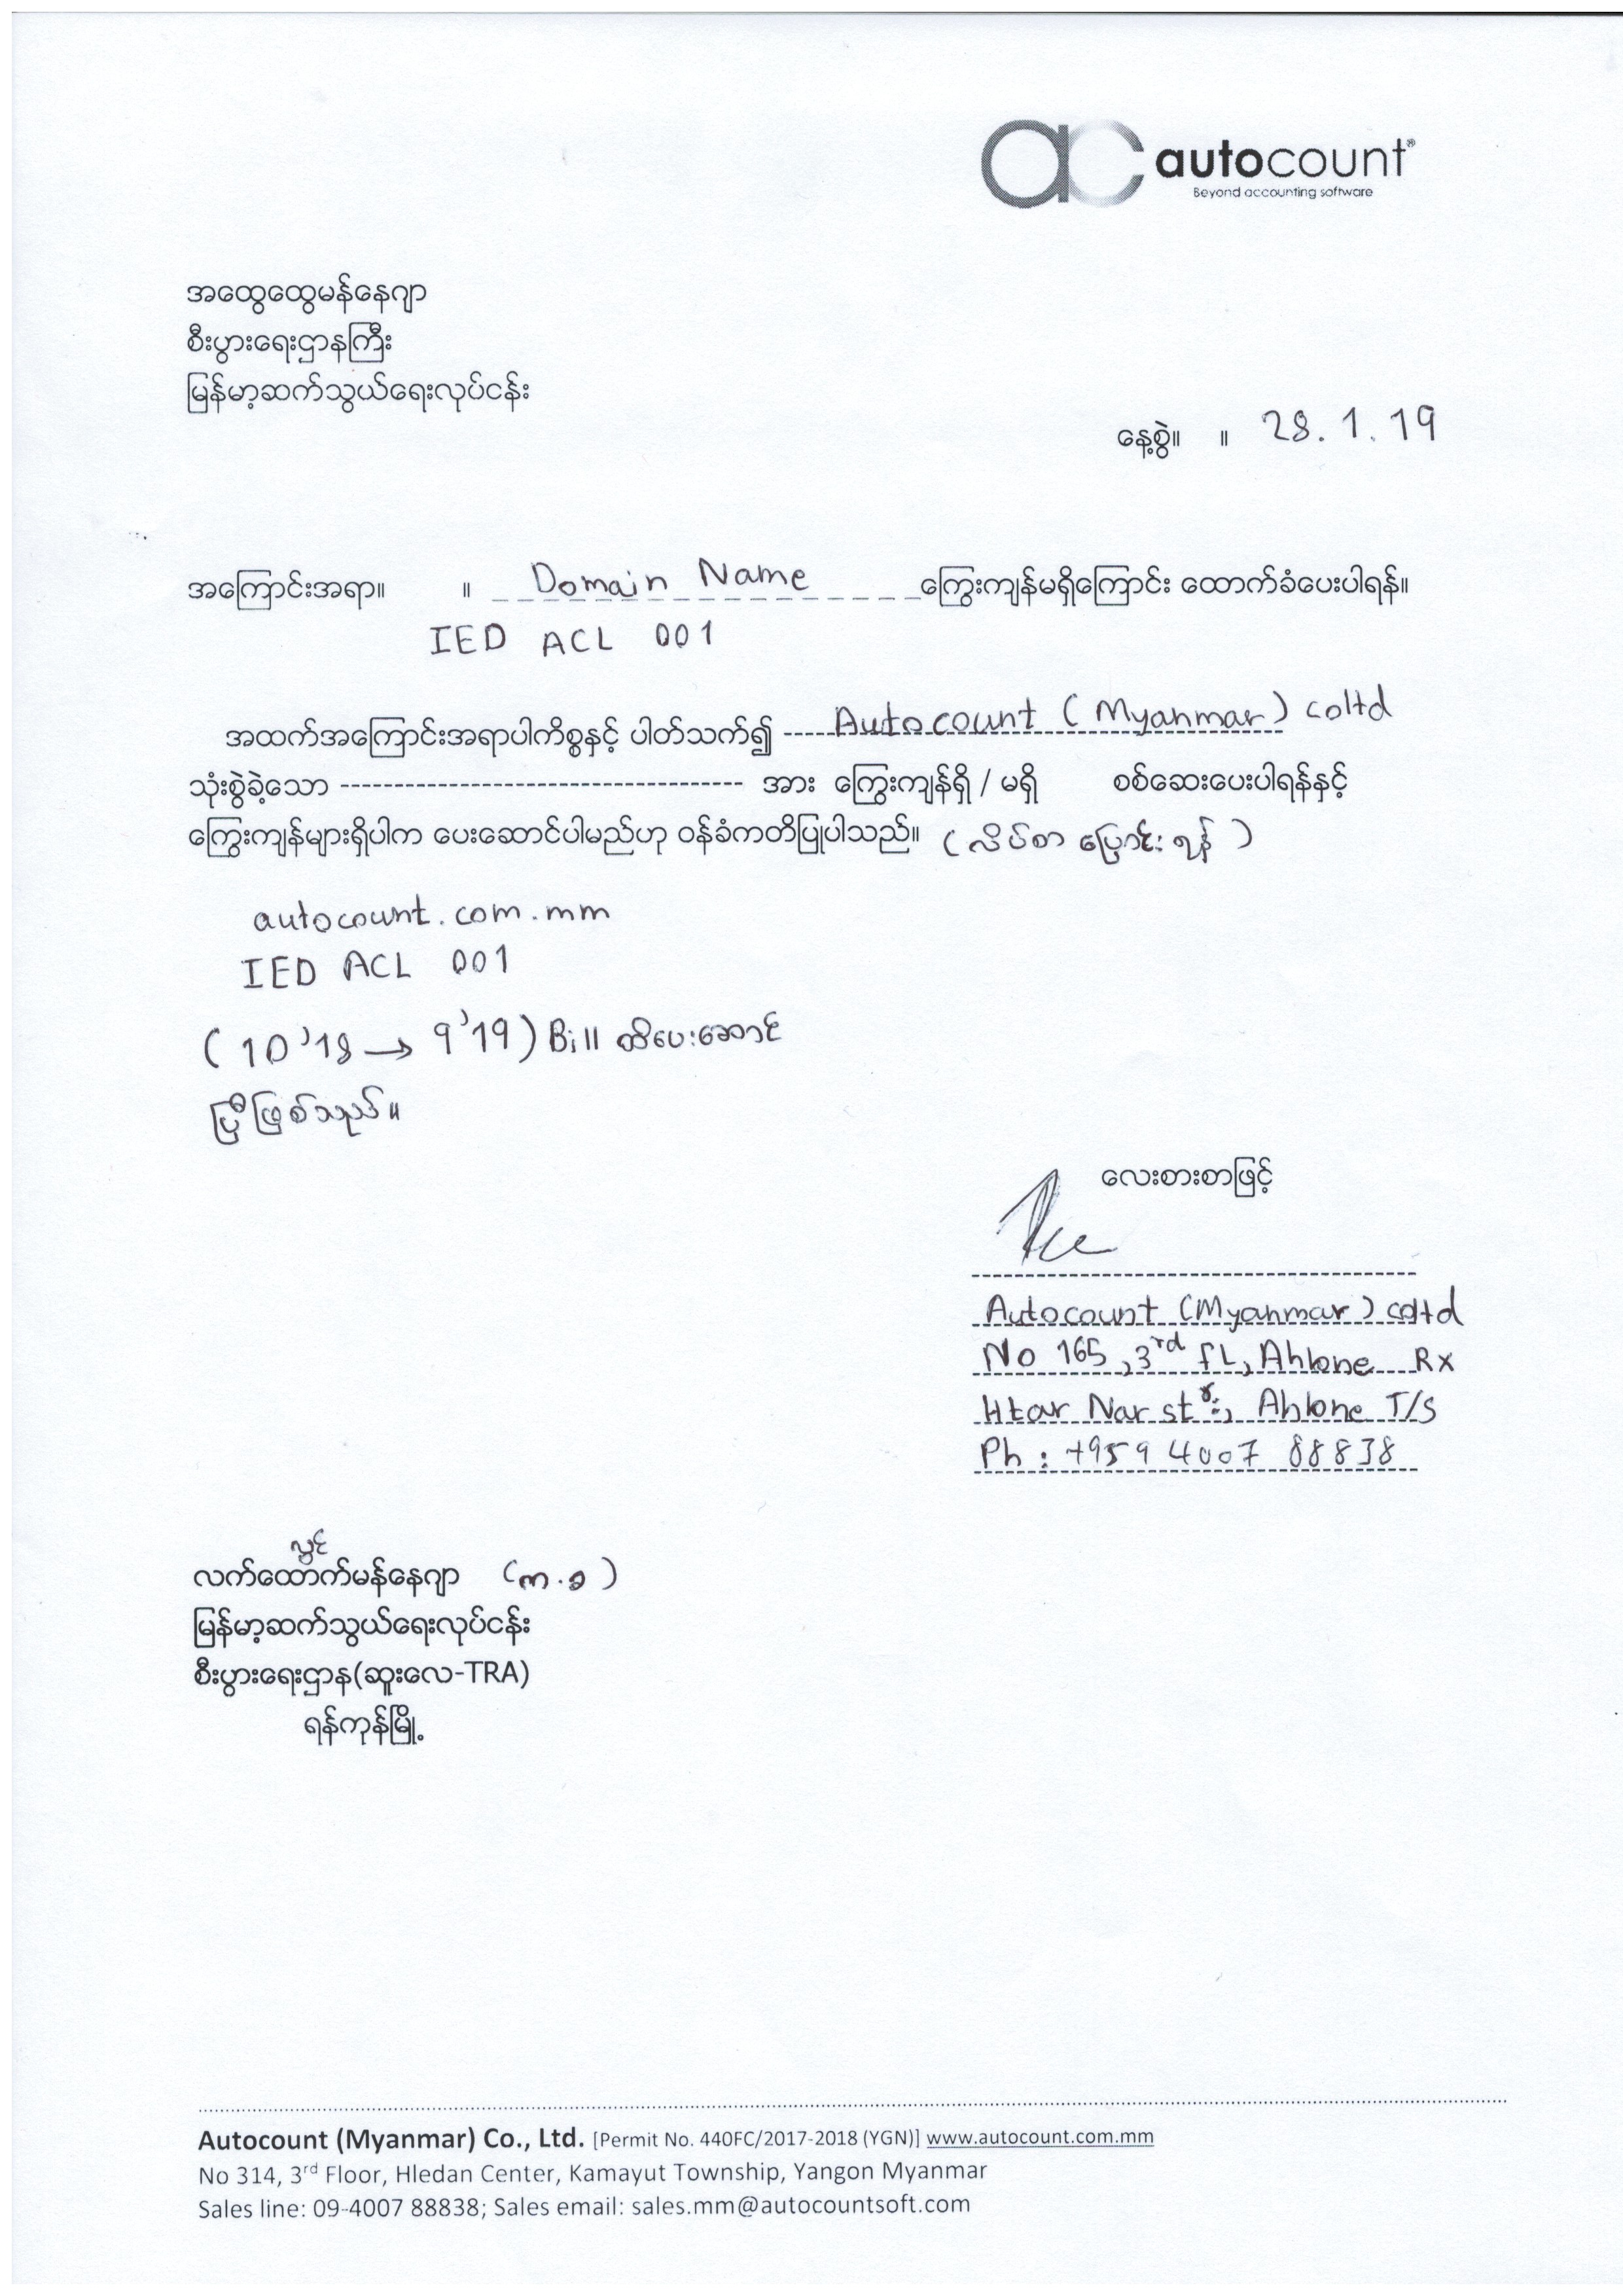 autocount®
Beyond accounting software
အထွေထွေမန်နေဂျာ
စီးပွားရေးဌာနကြီး
မြန်မာ့ဆက်သွယ်ရေးလုပ်ငန်း
နေ့စွဲ။ ။ 28.1.19
အကြောင်းအရာ။ ။ Domain Name ကြွေးကျန်မရှိကြောင်း ထောက်ခံပေးပါရန်။
IED ACL 001
အထက်အကြောင်းအရာပါကိစ္စနှင့် ပါတ်သက်၍ Autocount (Myanmar) coltd
သုံးစွဲခဲ့သော ------------------------------------- အား ကြွေးကျန်ရှိ / မရှိ စစ်ဆေးပေးပါရန်နှင့်
ကြွေးကျန်များရှိပါက ပေးဆောင်ပါမည်ဟု ဝန်ခံကတိပြုပါသည်။ (လိပ်စာ ပြောင်းရန်)
autocount.com.mm
IED ACL 001
(10'18 → 9'19) Bill ထိပေးဆောင်
ပြီးဖြစ်သည်။
လေးစားစာဖြင့်
Autocount (Myanmar) coltd
No 165, 3rd fL, Ahlone Rx
Htar Nar st, Ahlone T/S
Ph : +959 4007 88838
လွှင်
လက်ထောက်မန်နေဂျာ (က.ခ)
မြန်မာ့ဆက်သွယ်ရေးလုပ်ငန်း
စီးပွားရေးဌာန(ဆူးလေ-TRA)
ရန်ကုန်မြို့
Autocount (Myanmar) Co., Ltd. [Permit No. 440FC/2017-2018 (YGN)] www.autocount.com.mm
No 314, 3rd Floor, Hledan Center, Kamayut Township, Yangon Myanmar
Sales line: 09-4007 88838; Sales email: sales.mm@autocountsoft.com